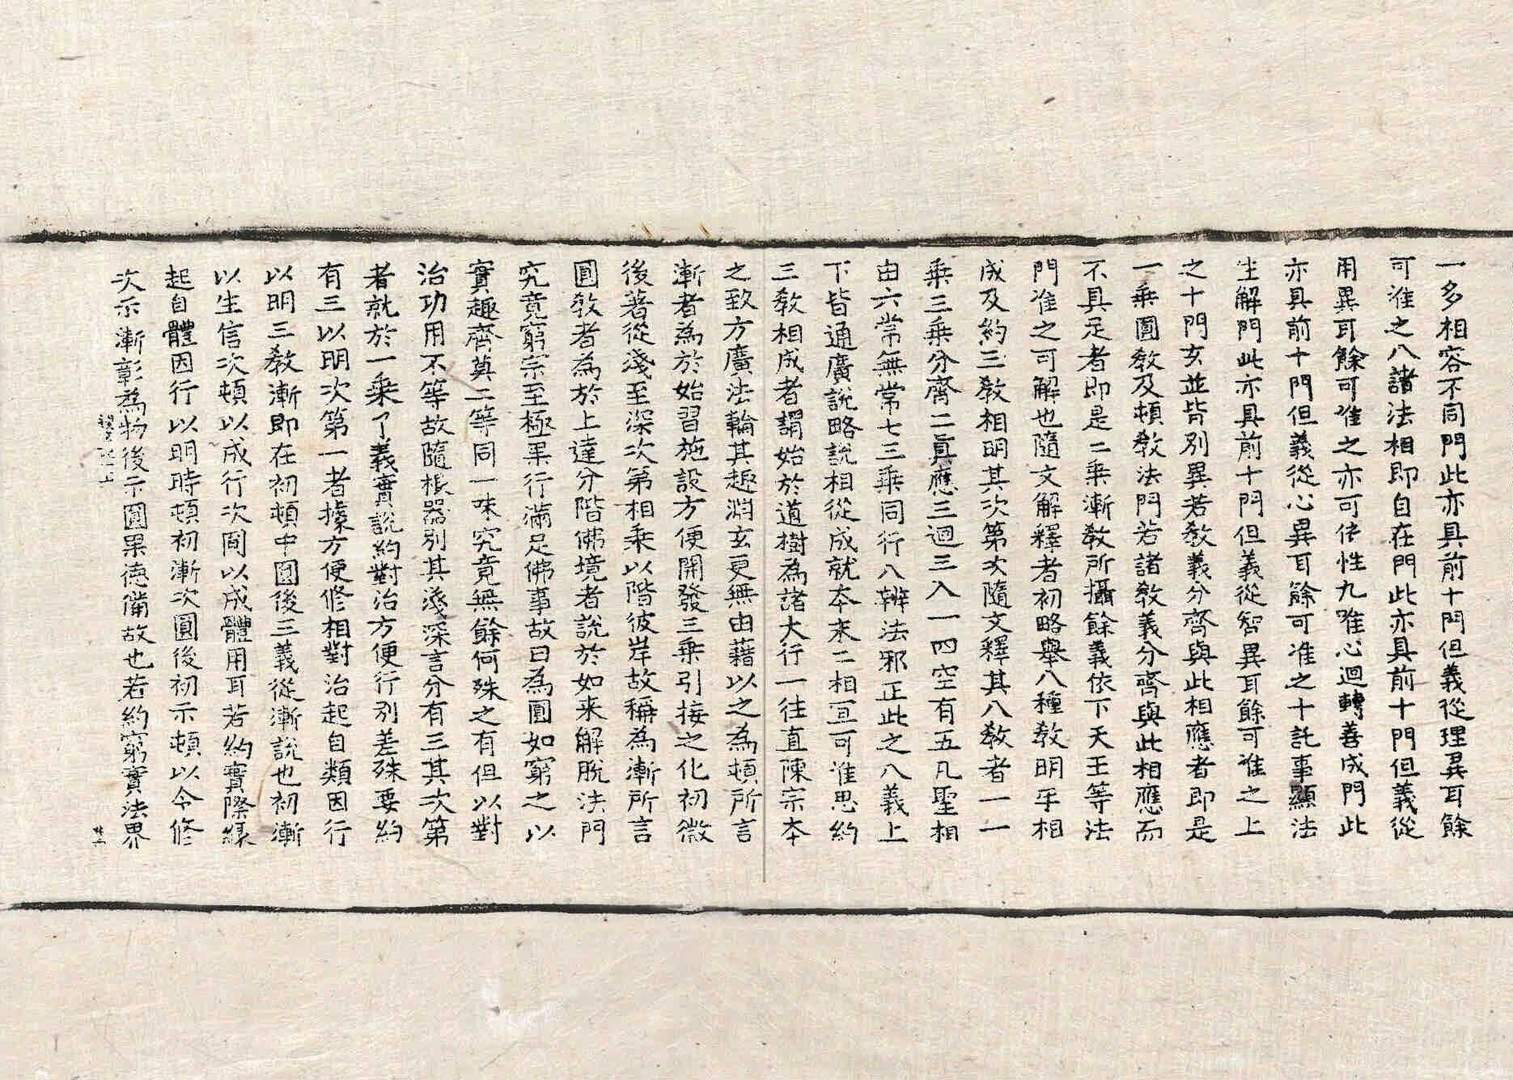 一多相容不同門此亦具前十門但義從理異耳餘
可准之八諸法相即自在門此亦具前十門但義從
用異耳餘可准之亦可依性九唯心迴轉善成門此
亦具前十門但義從心異耳餘可准之十託事顯法
生解門此亦具前十門但義從智異耳餘可准之上
之十門玄並皆別異若教義分齊與此相應者即是
一乘圓教及頓教法門若諸教義分齊與此相應而
不具足者即是二乘漸教所攝餘義依下天王等法
門准之可解也隨文解釋者初略舉八種教明乎相
成及約三教相明其次第次隨文釋其八教者一一
乘三乘分齊二真應三迴三入一四空有五凡聖相
由六常無常七三乘同行八辨法邪正此之八義上
下皆通廣說略說相從成就本来二相亘可准思約
三教相成者謂始於道樹為諸大行一往直陳宗本
之致方廣法輪其趣渕玄更無由藉以之為頓所言
漸者為於始習施設方便開發三乘引接之化初微
後著從淺至深次第相乘以階彼岸故稱為漸所言
圓教者為於上達分階佛境者說於如来解脫法門
究竟窮宗至極果行滿足佛事故曰為圓如窮之以
實趣齊莫二等同一味究竟無餘何殊之有但以對
治功用不等故隨根器別其淺深言分有三其次第
者就於一乘了義實說約對治方便行別差殊要約
有三以明次第一者據方便修相對治起自類因行
以明三教漸即在初頓中圓後三義從漸說也初漸
以生信次頓以成行次圓以成體用耳若約實際緣
起自體因行以明時頓初漸次圓後初示頓以令修
次示漸彰為物後示圓果德備故也若約窮實法界